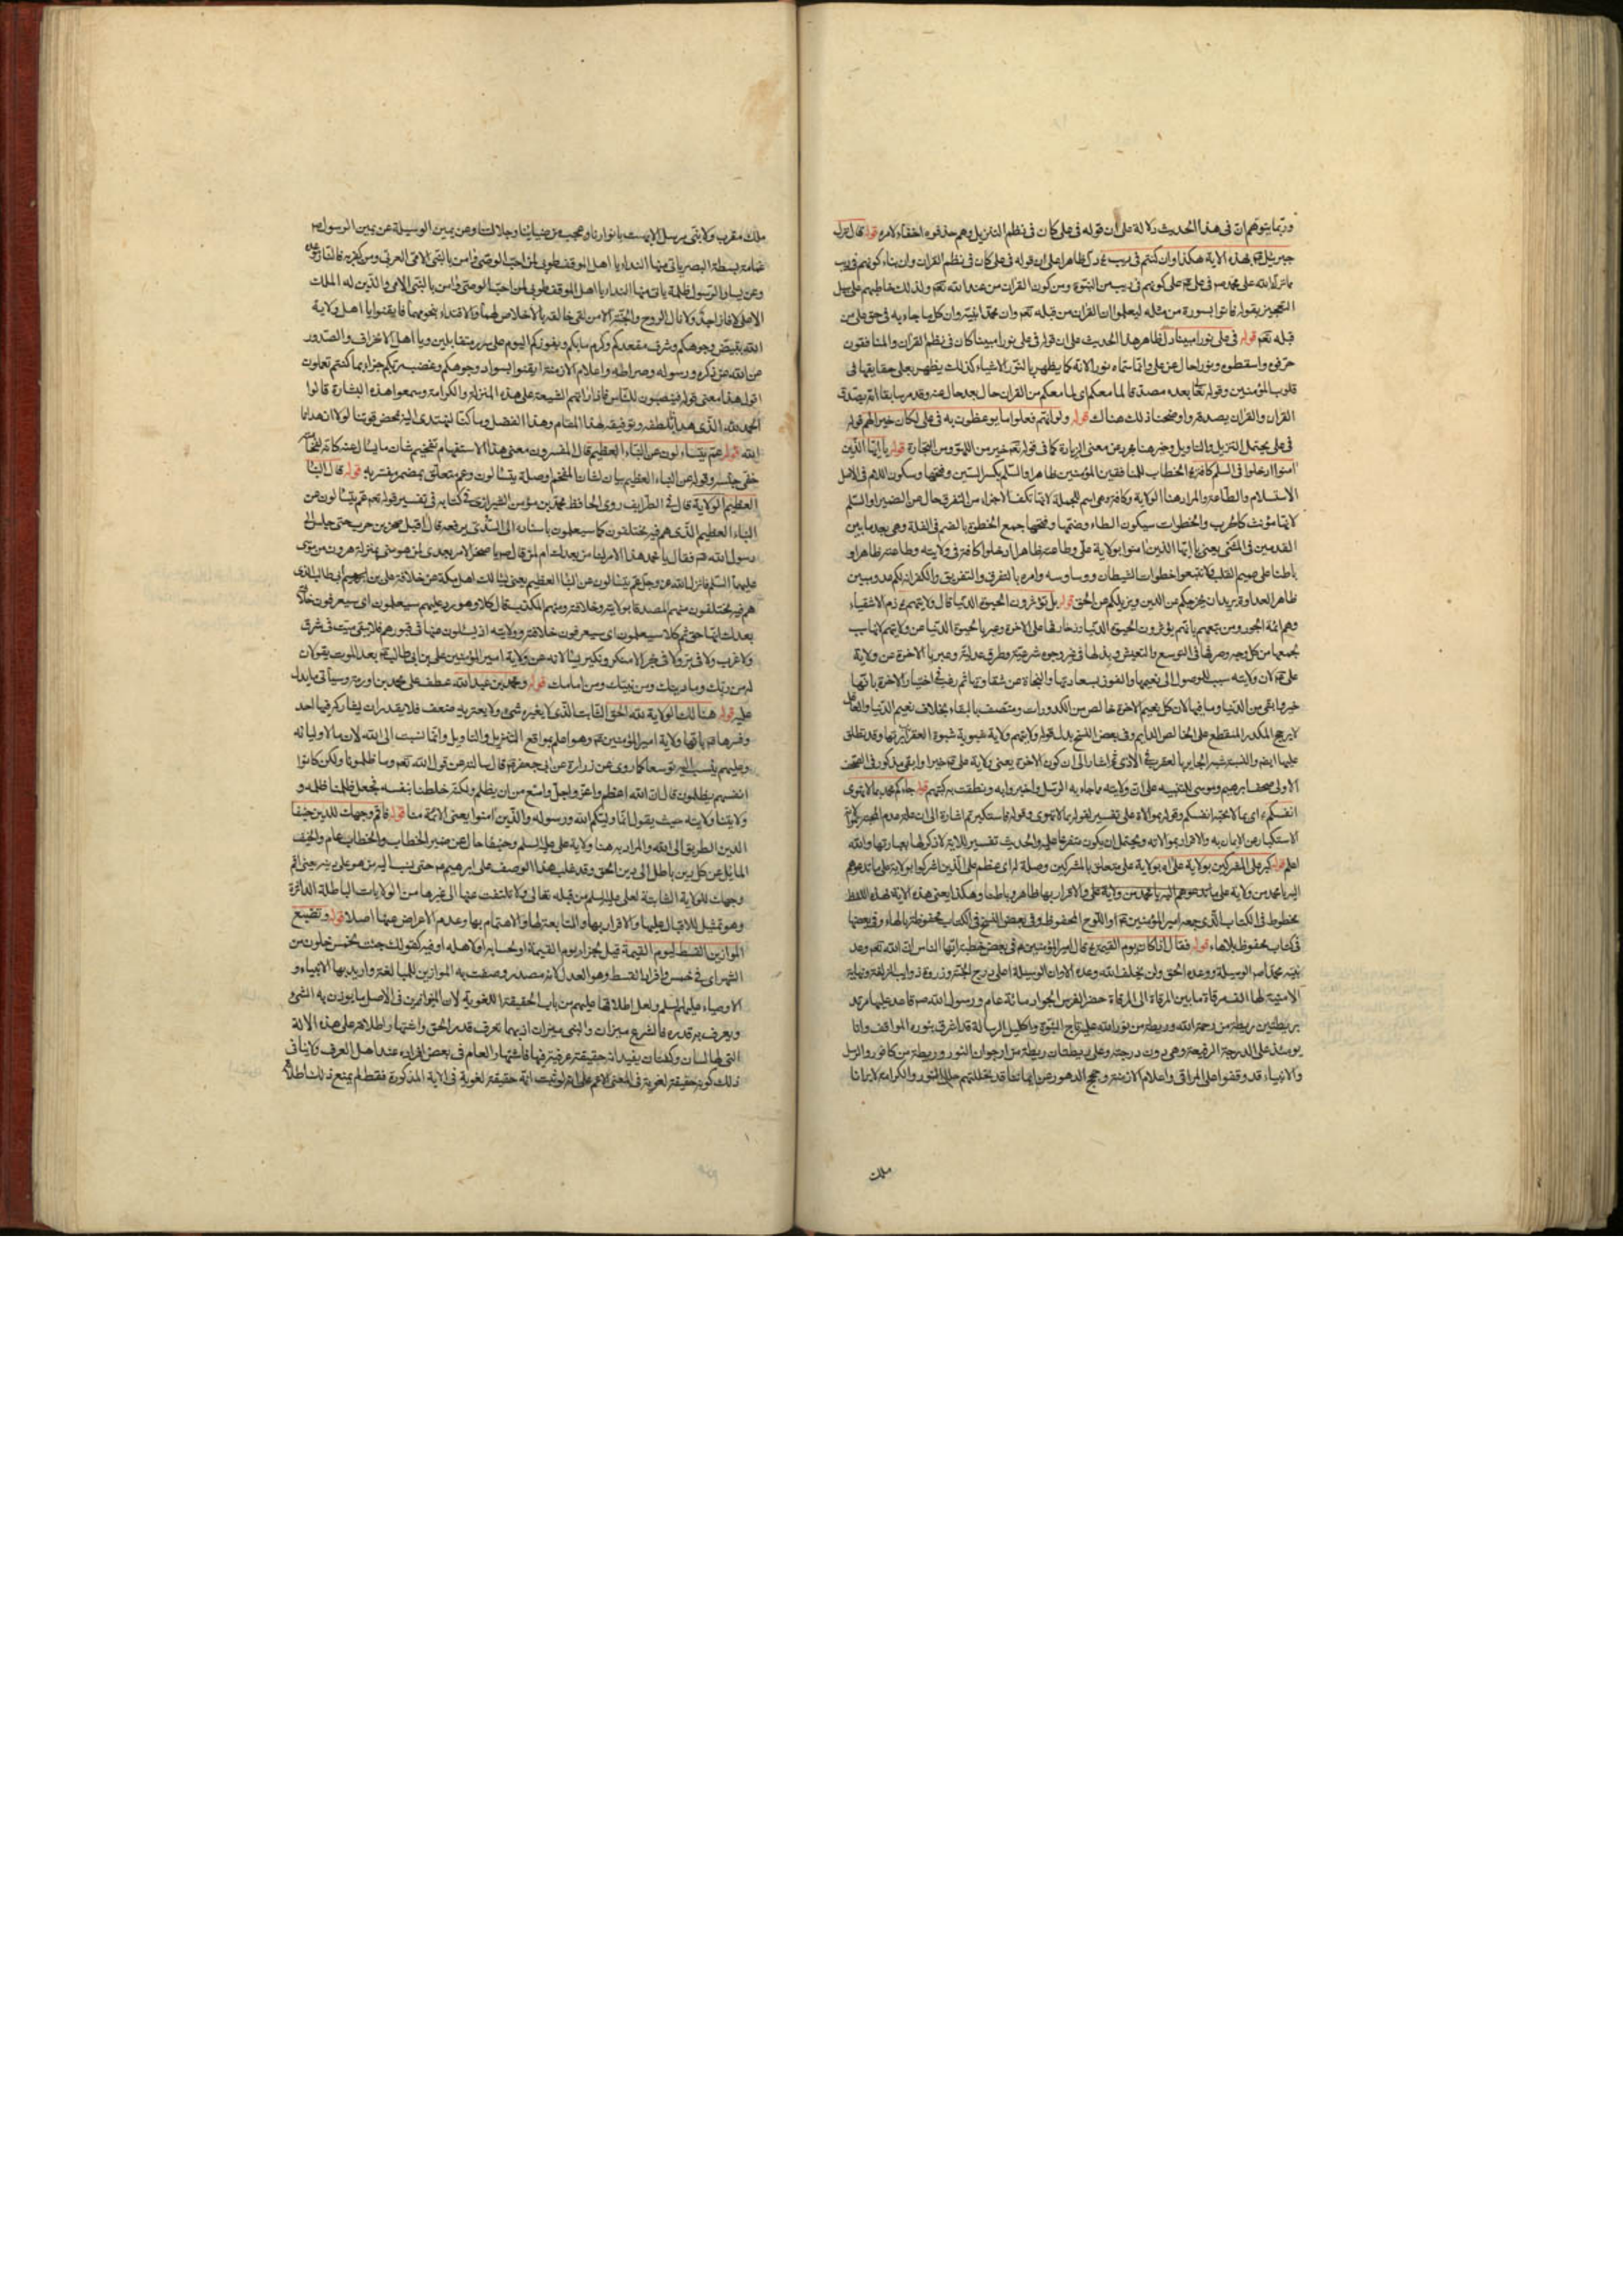 وربما يتوهم ان في هذا الحديث دلالة على ان قوله في علي كان في نظم التنزيل وهم حذفوه اخفاء لامره قوله قال نزل
جبرئيل بهذه الاية هكذا وان كنتم في ريب دل ظاهرا على ان قوله في علي كان في نظم القران وان بناء كونهم في ريب
مما نزل الله على محمد ص في علي ع على كونهم في ريب من النبوة ومن كون القران من عند الله تعم ولذلك خاطبهم على سبيل
التعجيز بقوله فاتوا بسورة من مثله ليعلموا ان القران من قبله تعم وان محمدا نبيه وان كل ما جاء به في حق علي من
قبله تعم قوله في علي نورا مبينا دل ظاهر هذا الحديث على ان قوله في علي نورا مبينا كان في نظم القران والمنافقون
حرفوه واسقطوه ونورا حال عن علي وانما سماه نورا لانه كما يظهر بالنور الاشياء كذلك يظهر بعلي حقايقها في
قلوب المؤمنين وقوله تعا بعده مصدقا لما معكم اي لما معكم من القران حال بعد حال عنه وقد مر سابقا انه يصدق
القران والقران يصدقه واوضحنا ذلك هناك قوله ولو انهم فعلوا ما يوعظون به في علي لكان خيرا لهم قوله
في علي يحتمل التنزيل والتاويل وخير هنا مجرد عن معنى الزيادة كما في قوله تعم خير من اللهو ومن التجارة قوله يا ايها الذين
امنوا ادخلوا في السلم كافة الخطاب للمنافقين المؤمنين ظاهرا والسلم بكسر السين وفتحها وسكون اللام في الاصل
الاستسلام والطاعة والمراد هنا الولاية وكافة وهي اسم للجملة لانها تكف الاجزاء من التفرق حال عن الضمير او السلم
لانها مؤنث كالحرب والخطوات بسكون الطاء وضمها وفتحها جمع الخطوة بالضم في القلة وهي بعد ما بين
القدمين في المشي يعني يا ايها الذين امنوا بولاية علي وطاعته ظاهرا ادخلوا كافة في ولايته وطاعته ظاهرا و
باطنا على صميم القلب فلا تتبعوا خطوات الشيطان ووساوسه وامره بالتفرق والتفريق والكفر انه لكم عدو مبين
ظاهر العداوة يريد ان يخرجكم من الدين ويزيلكم عن الحق قوله بل تؤثرون الحيوة الدنيا قال ولايتهم ع ذم الاشقياء
وهم ائمة الجور ومن تبعهم بانهم يؤثرون الحيوة الدنيا وزخارفها على الاخرة وعبر بالحيوة الدنيا عن ولايتهم لانها سبب
لجمعها من كل وجه وصرفها في التوسع والتعيش وبذلها في غير وجوه شرعية وطرق عدلية وعبر بالاخرة عن ولاية
علي ع لان ولايته سبب للوصول الى نعيمها والفوز بسعادتها والنجاة من شقاوتها ثم رغب في اختيار الاخرة بانها
خير وابقى من الدنيا وما فيها لان كل نعيم الاخرة خالص من الكدورات ومتصف بالبقاء بخلاف نعيم الدنيا والعاقل
لا يرجح المكدر المنقطع على الخالص الدايم وفي بعض النسخ بدل قوله ولايتهم ولاية شبوية شبوة العقرب
الاولى صحف ابرهيم وموسى للتنبيه على ان ولايته مما جاء به الرسل واخبروا به ونطقت به كتبهم قوله جاءكم محمد بما لا تهوى
انفسكم اي بما لا تحبه انفسكم وقوله بموالاة علي تفسير لقوله بما لا تهوى وقوله فاستكبرتم اشارة الى ان
الاستكبار عن الايمان به والاقرار بموالاته ويحتمل ان يكون متفرعا عليه والحديث تفسير للاية لا ذكر لها بعبارتها والله
اعلم قوله كبر على المشركين بولاية علي اه بولاية علي متعلق بالمشركين وصلة له اي عظم على الذين اشركوا بولاية علي ما تدعوهم
اليه يا محمد من ولاية علي والاقرار بها ظاهرا وباطنا وهكذا يعني هذه الاية بهذه اللفظ
مخطوط في الكتاب الذي جمعه امير المؤمنين ع او اللوح المحفوظ وفي بعض النسخ في الكتاب محفوظة بالهاء وفي بعضها
في كتاب محفوظ بلا هاء قوله فقال اذا كان يوم القيمة قال امير المؤمنين ع في بعض خطبه ايها الناس ان الله تعم وعد
نبيه محمدا ص الوسيلة ووعده الحق ولن يخلف الله وعده الا وان الوسيلة اعلى درج الجنة وذروة ذوايب الزلفة ونهاية
الامنية لها الف مرقاة ما بين المرقاة الى المرقاة حضر الفرس الجواد مائة عام ورسول الله ص قاعد عليها مرتد
بريطتين ريطة من رحمة الله وريطة من نور الله عليه تاج النبوة واكليل الرسالة قد اشرق بنوره المواقف وانا
يومئذ على الدرجة الرفيعة وهي دون درجته وعلي ريطتان ريطة من ارجوان النور وريطة من كافور والرسل
والانبياء قد وقفوا على المراقي واعلام الازمنة وحجج الدهور عن ايماننا قد تجللتهم حلل النور والكرامة لا يرانا
ملك
ملك مقرب ولا نبي مرسل الا بهت بانوارنا وعجب من ضيائنا وجلالتنا وعن يمين الوسيلة عن يمين الرسول ص
غمامة بسطة البصر ياتي منها النداء يا اهل الموقف طوبى لمن احب الوصي وامن بالنبي الامي العربي ومن كفر به فالنار موعده
وعن يسار الرسول ظلمة ياتي منها النداء يا اهل الموقف طوبى لمن احب الوصي وامن بالنبي الامي والذي له الملك
الاعلى لا فاز احد ولا نال الروح والجنة الا من لقي خالقه بالاخلاص لهما والاقتداء بنجومهما فايقنوا يا اهل ولاية
الله ببياض وجوهكم وشرف مقعدكم وكرم مابكم وبفوزكم اليوم على سرر متقابلين ويا اهل الانحراف والصدود
عن الله عز ذكره ورسوله وصراطه واعلام الازمنة ايقنوا بسواد وجوهكم وغضب ربكم جزاء بما كنتم تعملون
اقول هذا معنى قوله فينصبون للناس فاذا راتهم الشيعة على هذه المنزلة والكرامة وسمعوا هذه البشارة قالوا
الحمد لله الذي هدانا بلطفه وتوفيقه لهذا المقام وهذا الفضل وما كنا لنهتدي اليه بمحض قوتنا لولا ان هدانا
الله قوله عم يتساءلون عن النباء العظيم قال المفسرون معنى هذا الاستفهام تفخيم شان ما يسال عنه كانه لفخامته
خفي جنسه وقوله عن النباء العظيم بيان لشان المفخم او صلة يتسالون وعم متعلق بمضمر يفسر به قوله قال النبا
العظيم الولاية قال في الطرايف روى الحافظ محمد بن مؤمن الشيرازي في كتابه في تفسير قوله تعم عم يتسالون عن
النباء العظيم الذي هم فيه مختلفون كلا سيعلمون باسناده الى السدي يرفعه قال اقبل صخر بن حرب حتى جلس الى
رسول الله ص فقال يا محمد هذا الامر لنا من بعدك ام لمن قال ص يا صخر الامر بعدي لمن هو مني بمنزلة هرون من موسى
عليهما السلم فانزل الله عز وجل عم يتسالون عن النبا العظيم يعني يسالك اهل مكة عن خلافة علي بن ابي طالب الذي
هم فيه مختلفون منهم المصدق بولايته وخلافته ومنهم المكذب قال كلا وهو رد عليهم سيعلمون اي سيعرفون خلافته
بعدك انها حق ثم كلا سيعلمون اي سيعرفون خلافته وولايته اذ يسئلون عنها في قبورهم فلا يبقى ميت في شرق
ولا غرب ولا في بر ولا في بحر الا منكر ونكير يسالانه عن ولاية امير المؤمنين علي بن ابي طالب ع بعد الموت يقولان
له من ربك وما دينك ومن نبيك ومن امامك قوله ومحمد بن عبد الله عطف على محمد بن اورمة وسياتي ما يدل
عليه قوله هنالك الولاية لله الحق الثابت الذي لا يغيره شيء ولا يعتريه ضعف فلا يقدر ان يشاركه فيها احد
وفسرها ع بانها ولاية امير المؤمنين ع وهو اعلم بمواقع التنزيل والتاويل وانما نسبت الى الله لان ما لاوليائه
وعليهم ينسب اليه توسعا كما روي عن زرارة عن ابي جعفر ع قال سالته عن قول الله تعم وما ظلمونا ولكن كانوا
انفسهم يظلمون قال ان الله اعظم واعز واجل وامنع من ان يظلم ولكنه خلطنا بنفسه فجعل ظلمنا ظلمه و
ولايتنا ولايته حيث يقول انما وليكم الله ورسوله والذين امنوا يعني الائمة منا قوله فاقم وجهك للدين حنيفا
الدين الطريق الى الله والمراد به هنا ولاية علي عليه السلم وحنيفا حال عن ضمير الخطاب والخطاب عام والحنيف
المائل عن كل دين باطل الى دين الحق وقد غلب هذا الوصف على ابرهيم ع حتى نسب اليه من هو على دينه يعني اقم
وجهك للولاية الثابتة لعلي عليه السلم من قبله تعالى ولا تلتفت عنها الى غيرها من الولايات الباطلة الدائرة
وهو تمثيل للاقبال عليها والاقرار بها والمتابعة لها والاهتمام بها وعدم الاعراض عنها اصلا قوله ونضع
الموازين القسط ليوم القيمة قيل لجزاء يوم القيمة او لحساب او لاهله او فيه كقولك جئت لخمس خلون من
الشهر اي في خمس وافراد القسط وهو العدل لانه مصدر وصفت به الموازين للمبالغة واريد بها الانبياء و
الاوصياء عليهم السلم ولعل اطلاقها عليهم من باب الحقيقة اللغوية لان الميزان في الاصل ما يوزن به الشيء
ويعرف به قدره فالشرع ميزان والنبي ميزان اذ بهما تعرف قدر الحق واشتهار اطلاقه على هذه الالة
التي لها لسان وكفتان بقيد انه حقيقة عرفية فيها فاشتهار العام في بعض افراده عند اهل العرف لا ينافي
ذلك كونه حقيقة لغوية في المعنى الاعم على انه لو ثبت انه حقيقة لغوية في الالة المذكورة فقط لم يمنع ذلك اطلاقه